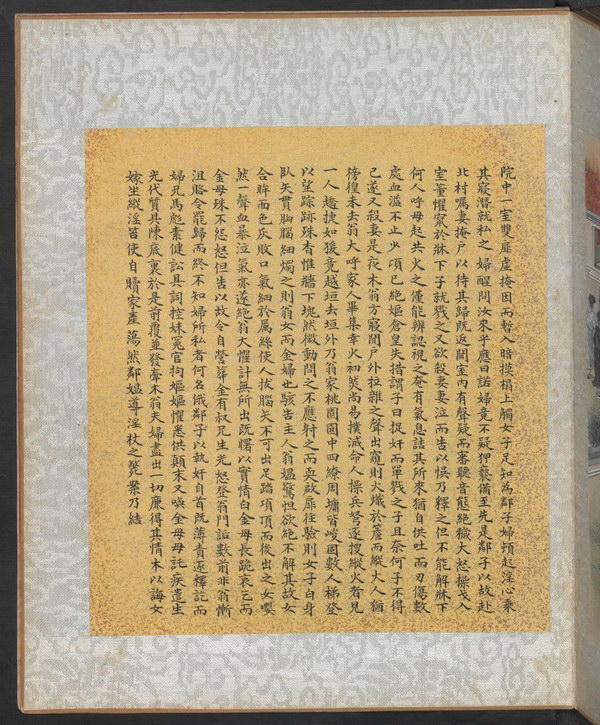 院中一室雙扉虛掩因而暫入暗摸榻上觸女子足知為鄰子婦頓起淫心乘
其寢潛就私之婦醒問汝來乎應曰諾婦竟不疑狎褻備至先是鄰子以故赴
北村囑妻掩戶以待其歸既返聞室內有聲疑而審聽音態絕穢大怒操戈入
室董懼竄於牀下子就戮之又欲殺妻妻泣而告以悞乃釋之但不能解牀下
何人呼母起共火之僅能辨認視之奄有氣息詰其所來猶自供吐而刃傷數
處血溢不止少頃已絕嫗倉皇失措謂子曰捉奸而單戮之子且奈何子不得
已遂又殺妻是夜木翁方寢聞戶外拉雜之聲出窺則火熾於簷而縱火人猶
徬徨未去翁大呼家人畢集幸火初燃尚易撲滅命人操兵弩逐搜縱火者見
一人趫捷如猿竟越垣去垣外乃翁家桃園園中四繚周墉皆峻固數人梯登
以望踪跡殊杳惟牆下塊然微動問之不應射之而耎啟扉往驗則女子白身
臥矢貫胸腦細燭之則翁女而金婦也駭告主人翁媼驚怛欲絕不解其故女
合眸面色灰敗口氣細於屬絲使人拔腦矢不可出足踏項頂而後出之女嚶
然一聲血暴注氣亦遂絕翁大懼計無所出既曙以實情白金母長跪哀乞而
金母殊不怨怒但告以故令自營葬金有叔兄生光怒登翁門詬數前非翁慚
沮賂令罷歸而終不知婦所私者何名俄鄰子以執奸自首既薄責逐釋訖而
婦兄馬彪素健訟具詞控妹冤官拘嫗嫗懼悉供顛末又喚金母母託疾遣生
光代質具陳底裏於是前覆並發牽木翁夫婦盡出一切廉得其情木以誨女
嫁坐縱淫笞使自贖家產蕩然鄰媼導淫杖之斃案乃結